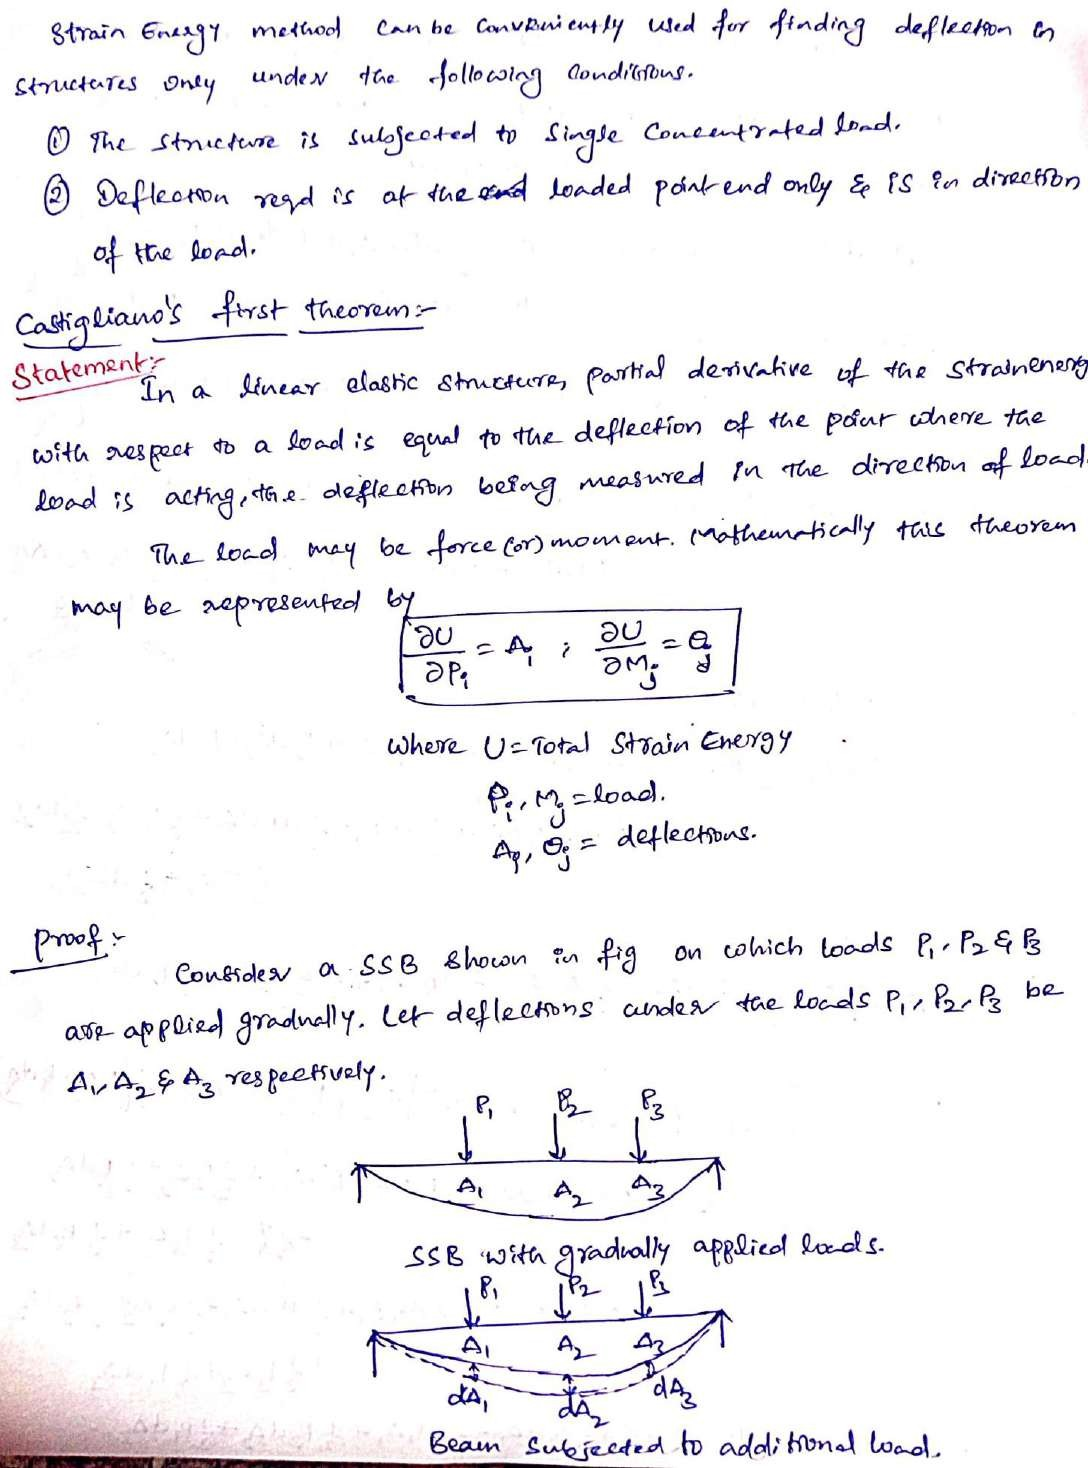 Strain Energy method can be conveniently used for finding deflection in
structures only under the following conditions.
① The structure is subjected to single concentrated load.
② Deflection reqd is at the loaded point end only & is in direction
of the load.
Castigliano's first theorem:-
Statement:-
In a linear elastic structure, partial derivative of the strainenergy
with respect to a load is equal to the deflection of the point where the
load is acting, the deflection being measured in the direction of load.
The load may be force (or) moment. Mathematically this theorem
may be represented by
∂U/∂Pi = Δi ; ∂U/∂Mj = θj
where U = Total Strain Energy
Pi, Mj = load.
Δi, θj = deflections.
Proof:-
Consider a SSB shown in fig on which loads P1, P2 & P3
are applied gradually. Let deflections under the loads P1, P2, P3 be
Δ1, Δ2 & Δ3 respectively.
P1 P2 P3
Δ1 Δ2 Δ3
SSB with gradually applied loads.
P1 P2 P3
Δ1 Δ2 Δ3
dΔ1 dΔ2 dΔ3
Beam subjected to additional load.